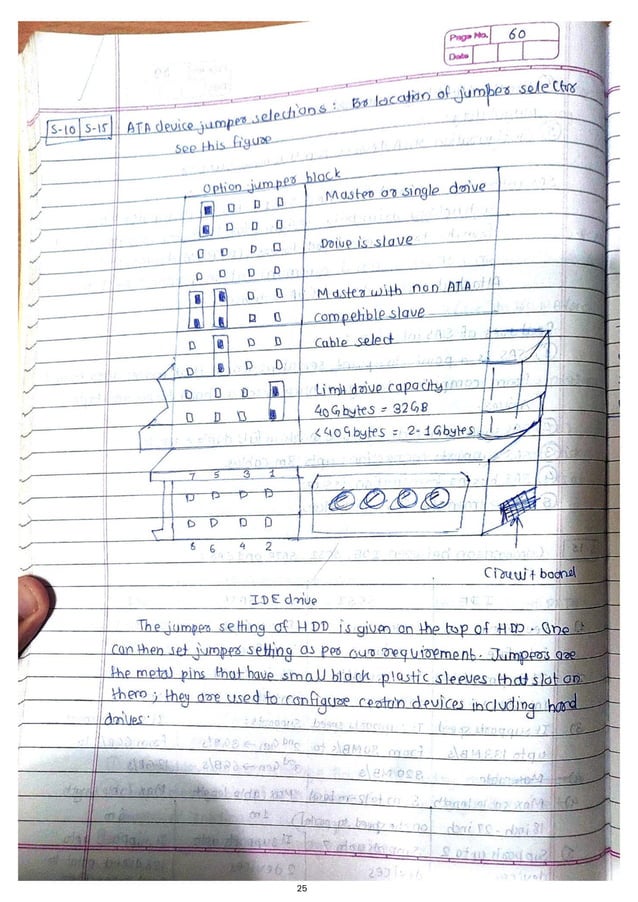 Page No. 60
Date
S-10 S-15 ATA device jumper selections: For location of jumper selector
see this figure
Option jumper block
Master or single drive
Drive is slave
Master with non ATA
competible slave
Cable select
Limit drive capacity
40Gbytes = 32GB
<40Gbytes = 2-1Gbytes
7 5 3 1
8 6 4 2
Circuit board
IDE drive
The jumper setting of HDD is given on the top of HDD. One
can then set jumper setting as per our requirement. Jumpers are
the metal pins that have small black plastic sleeves that slot on
them; they are used to configure certain devices including hard
drives.
25